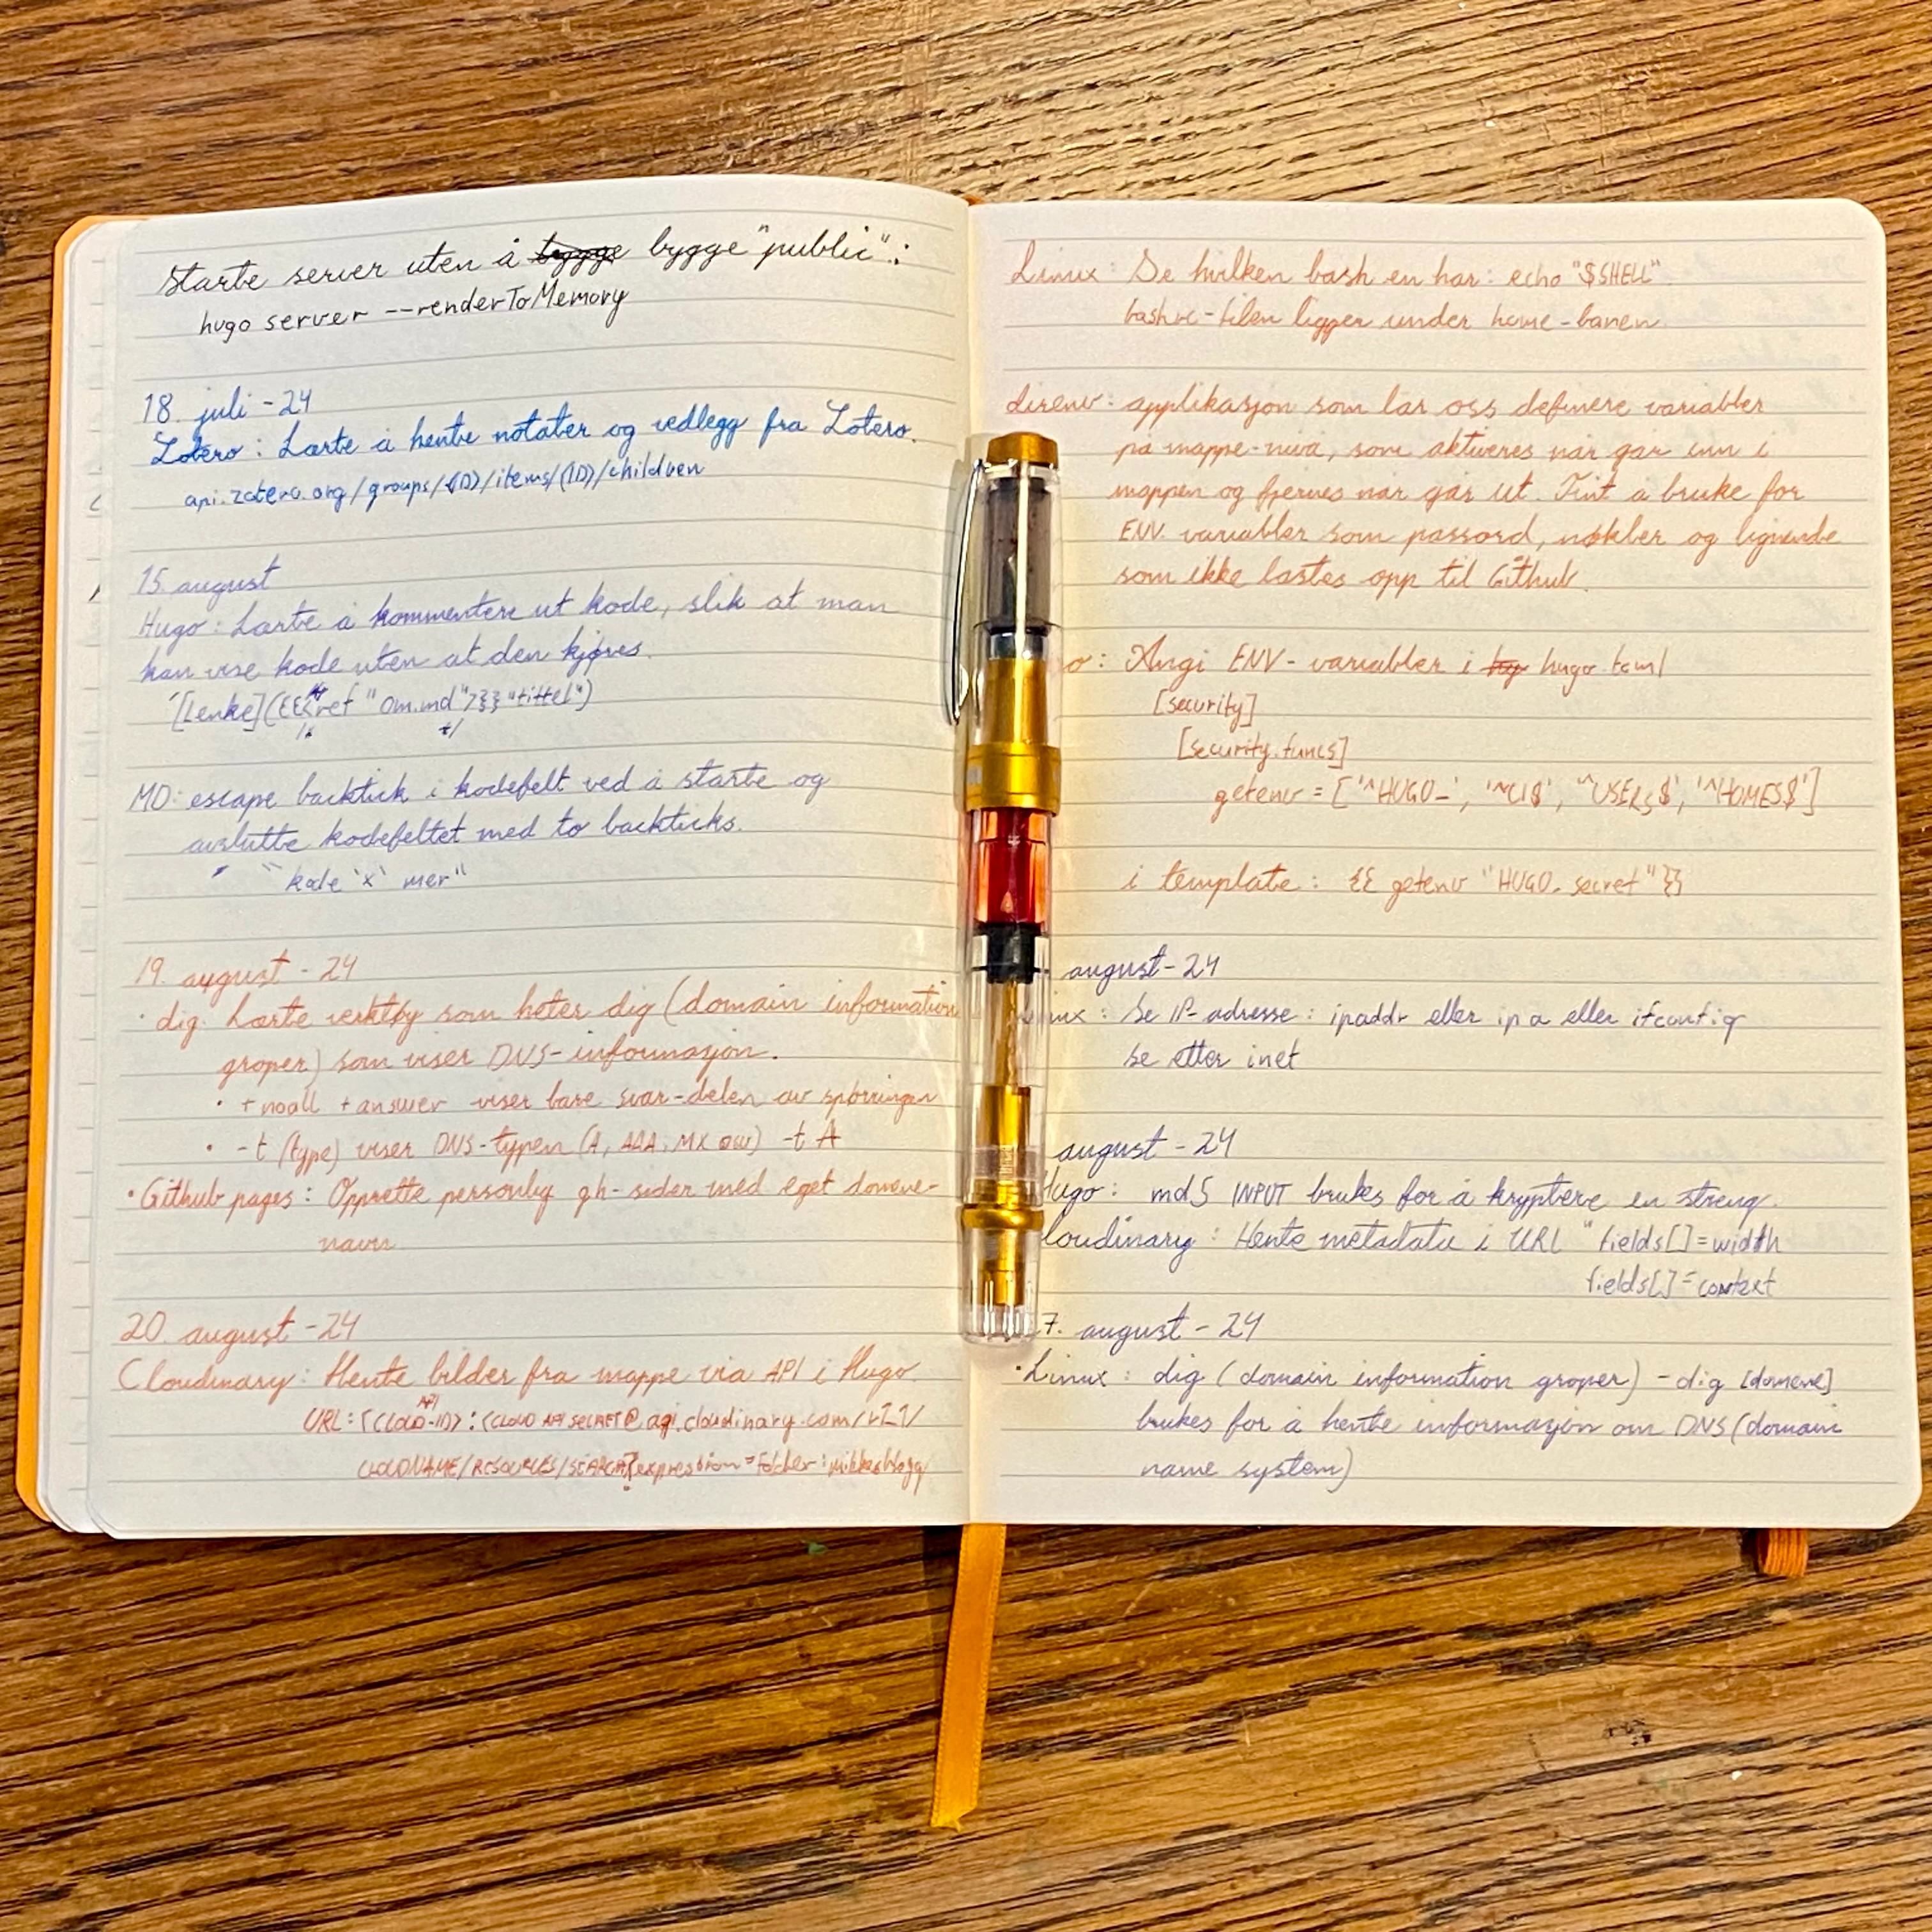 Starte server uten å bygge bygge "public":
hugo server --renderToMemory
18. juli - 24
Zotero: Lærte å hente notater og vedlegg fra Zotero.
api.zotero.org/groups/<ID>/items/<ID>/children
15. august
Hugo: Lærte å kommentere ut kode, slik at man
kan vise kode uten at den kjøres.
[Lenke]({{< ref "om.md" >}} "tittel")
/* */
MD: escape backtick i kodefelt ved å starte og
avslutte kodefeltet med to backticks.
`` kode `x` mer``
19. august - 24
· dig. Lærte verktøy som heter dig (domain information
groper) som viser DNS-informasjon.
· +noall +answer viser bare svar-delen av spørringen
· -t (type) viser DNS-typen (A, AAA, MX osv) -t A
· Github pages: Opprette personlig gh-sider med eget domene-
navn
20. august - 24
Cloudinary: Hente bilder fra mappe via API i Hugo.
API
URL: <CLOUD-ID>:<CLOUD API SECRET@api.cloudinary.com/v1_1/
CLOUDNAME/RESOURCES/SEARCH?expression=folder:mikkesblogg
Linux: Se hvilken bash en har: echo "$SHELL"
bashrc-filen ligger under home-banen.
direnv: applikasjon som lar oss definere variabler
på mappe-nivå, som aktiveres når går inn i
mappen og fjernes når går ut. Fint å bruke for
ENV. variabler som passord, nøkler og lignende
som ikke lastes opp til Github.
o: Angi ENV-variabler i hugo.toml
[security]
[security.funcs]
getenv = ['^HUGO_', '^CI$', '^USERS$', '^HOMES$']
i template: {{ getenv "HUGO_secret" }}
august - 24
nux: Se IP-adresse: ipaddr eller ip a eller ifconfig
se etter inet
august - 24
Hugo: md5 INPUT brukes for å kryptere en streng.
loudinary: Hente metadata i URL "fields[]=width
fields[]=context
7. august - 24
· Linux: dig (domain information groper) - dig [domene]
brukes for å hente informasjon om DNS (domain
name system)